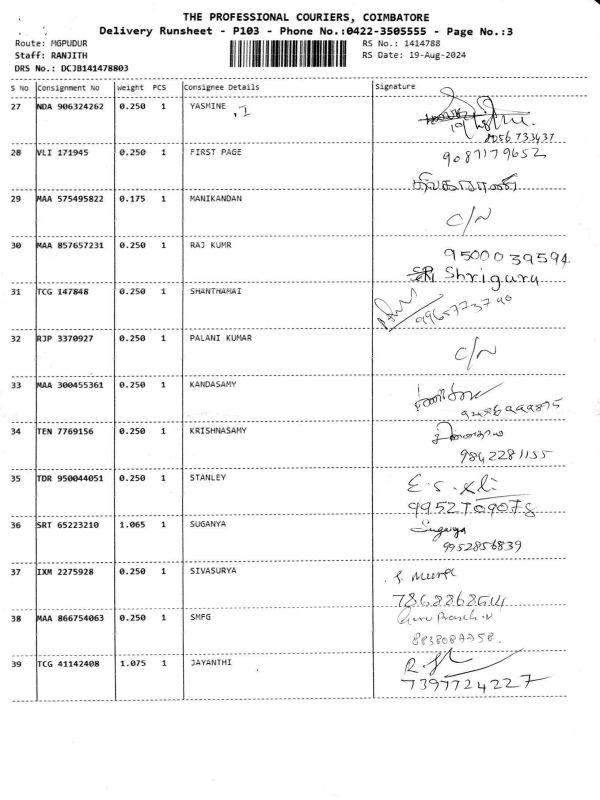 THE PROFESSIONAL COURIERS, COIMBATORE
Delivery Runsheet - P103 - Phone No.:0422-3505555 - Page No.:3
Route: MGPUDUR
RS No.: 1414788
Staff: RANJITH
RS Date: 19-Aug-2024
DRS No.: DCJB141478803
S No Consignment No Weight PCS Consignee Details Signature
27 NDA 906324262 0.250 1 YASMINE , I
8056 733437
28 VLI 171945 0.250 1 FIRST PAGE 9087179652
29 MAA 575495822 0.175 1 MANIKANDAN
C/N
30 MAA 857657231 0.250 1 RAJ KUMR 9500039594
Shriguru
31 TCG 147848 0.250 1 SHANTHAMAI
32 RJP 3370927 0.250 1 PALANI KUMAR
C/N
33 MAA 300455361 0.250 1 KANDASAMY
34 TEN 7769156 0.250 1 KRISHNASAMY
9842281155
35 TDR 950044051 0.250 1 STANLEY
9952709078
36 SRT 65223210 1.065 1 SUGANYA Suganya
9952856839
37 IXM 2275928 0.250 1 SIVASURYA
38 MAA 866754063 0.250 1 SMFG
39 TCG 41142408 1.075 1 JAYANTHI
7397724227